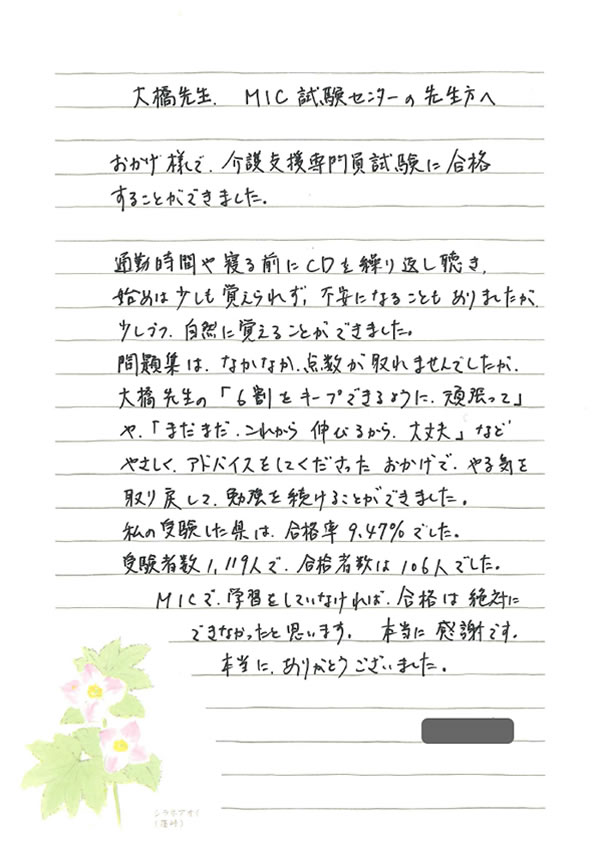 大橋先生. MIC 試験センターの先生方へ
おかげ様で、介護支援専門員試験に合格
することができました。
通勤時間や寝る前にCDを繰り返し聴き、
始めは少しも覚えられず、不安になることもありましたが、
少しづつ、自然に覚えることができました。
問題集は、なかなか、点数が取れませんでしたが、
大橋先生の「6割をキープできるように、頑張って」
や、「まだまだ、これから伸びるから、大丈夫」など
やさしく、アドバイスをしてくださったおかげで、やる気を
取り戻して、勉強を続けることができました。
私の受験した県は、合格率9.47%でした。
受験者数1,119人で、合格者数は106人でした。
MICで、学習をしていなければ、合格は絶対に
できなかったと思います。 本当に感謝です。
本当に、ありがとうございました。
シラネアオイ